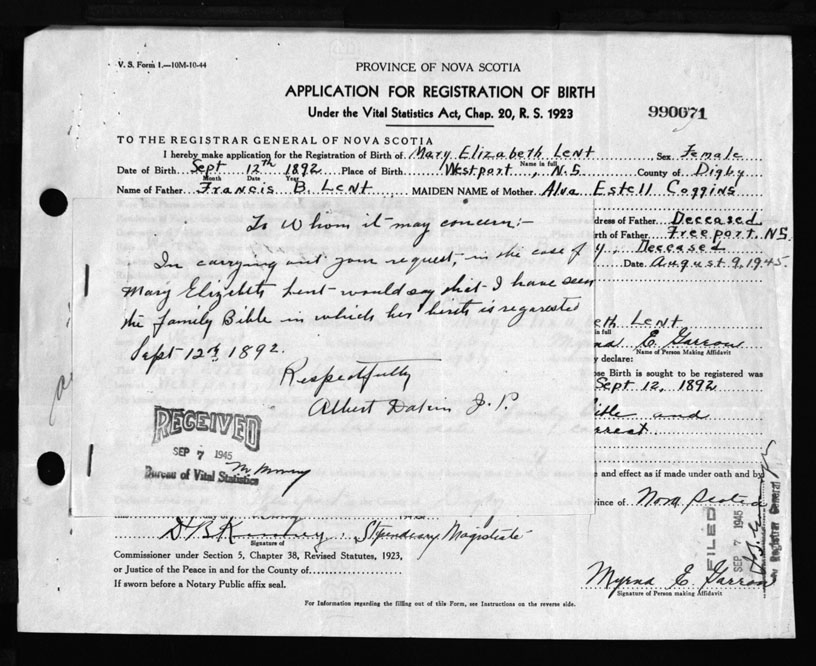 V. S. Form 1.—10M-10-44
PROVINCE OF NOVA SCOTIA
APPLICATION FOR REGISTRATION OF BIRTH
Under the Vital Statistics Act, Chap. 20, R. S. 1923
990671
TO THE REGISTRAR GENERAL OF NOVA SCOTIA
I hereby make application for the Registration of Birth of Mary Elizabeth Lent Sex Female
Name in full
Date of Birth Sept 12th 1892 Place of Birth Westport, N.S County of Digby
Month Date Year
Name of Father Francis B. Lent MAIDEN NAME of Mother Alva Estell Coggins
dress of Father Deceased
rth of Father Freeport, N.S.
y, Deceased
Date August 9, 1945.
To Whom it may concern:-
In carrying out your request, in the case of
Mary Elizabeth Lent would say that I have seen
the family Bible in which her birth is
Sept 12th 1892.
Respectfully
Albert J. P.
RECEIVED
SEP 7 1945
Bureau of Vital Statistics
eth Lent
in full
E. Garron
Name of Person Making Affidavit
y declare:
ose Birth is sought to be registered was
Sept 12, 1892
ible and
rrect.
e and effect as if made under oath and by
ovince of Nova Scotia
Stipendiary Magistrate
Signature of
Commissioner under Section 5, Chapter 38, Revised Statutes, 1923,
or Justice of the Peace in and for the County of
If sworn before a Notary Public affix seal.
FILED
SEP 7 1945
Registrar General
Myrna E. Garron
Signature of Person making Affidavit
For Information regarding the filling out of this Form, see Instructions on the reverse side.